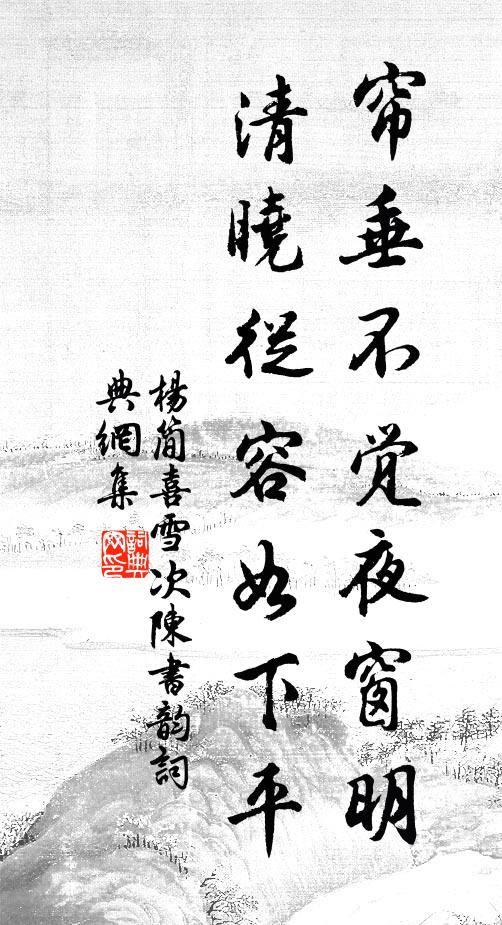 帘垂不觉夜窗明
清曉從容如下平
楊簡喜雪次陳書韵詞
典網集
詞典網印